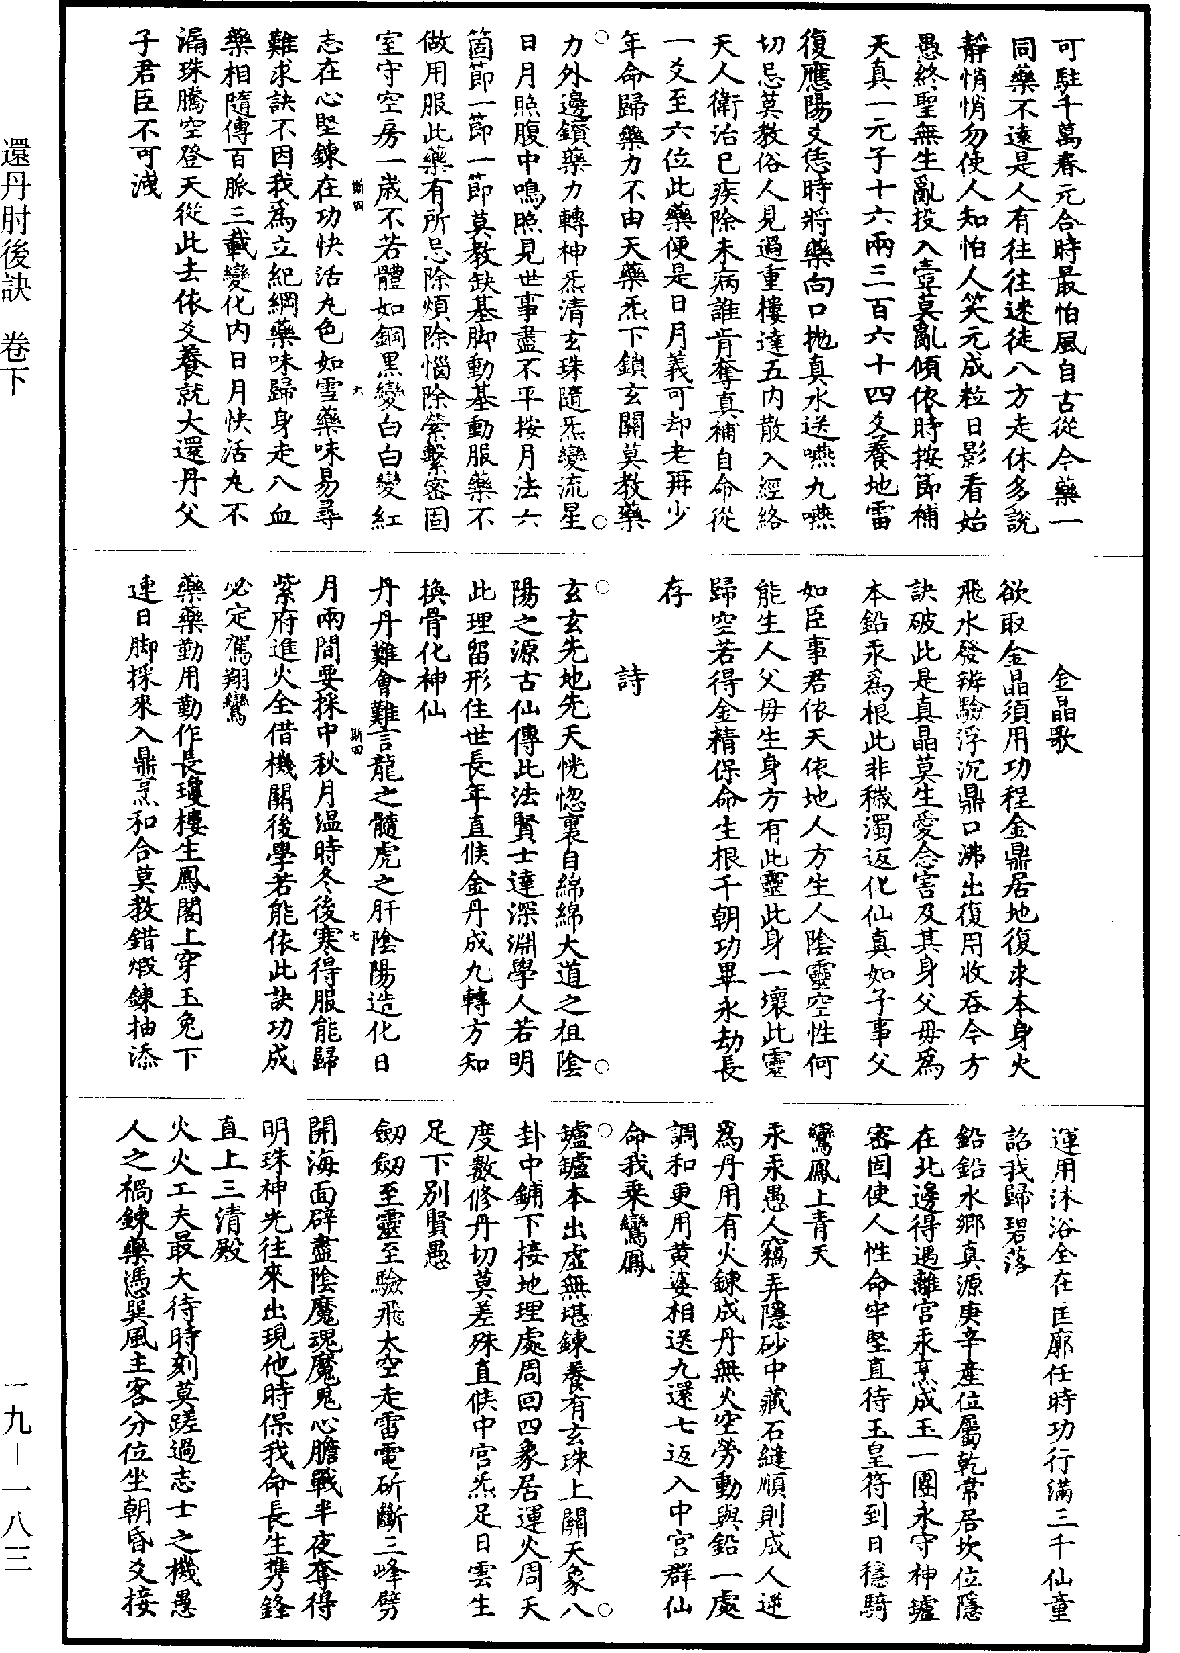 可駐千萬春元合時最怕風自古從今藥一
同藥不遠是人有往往迷徒八方走休多說
靜悄悄勿使人知怕人笑元成粒日影看始
愚終聖無生亂投入壺莫亂傾依時按節補
天真一元子十六兩三百六十四爻養地雷
復應陽爻恁時將藥向口拋真水送嚥九嚥
切忌莫教俗人見過重樓達五內散入經絡
天人衛治已疾除未病誰肯奪真補自命從
一爻至六位此藥便是日月義可却老再少
年命歸藥力不由天藥炁下鎖玄關莫教藥
力外邊鎖藥力轉神炁清玄珠隨炁變流星
日月照腹中鳴照見世事盡不平按月法六
箇節一節一節莫教缺基脚動基動服藥不
做用服此藥有所忌除煩除惱除縈繫密固
室守空房一歲不若體如銅黑變白白變紅
志在心堅鍊在功快活丸色如雪藥味易尋
難求訣不因我爲立紀綱藥味歸身走八血
藥相隨傳百脈三載變化內日月快活丸不
漏珠騰空登天從此去依爻養就大還丹父
子君臣不可洩
金晶歌
欲取金晶須用功程金鼎居地復求本身火
飛水發辨驗浮沉鼎口沸出復用收吞今方
訣破此是真晶莫生愛念害及其身父母爲
本鉛汞爲根此非穢濁返化仙真如子事父
如臣事君依天依地人方生人陰靈空性何
能生人父母生身方有此靈此身一壞此靈
歸空若得金精保命生根千朝功畢永劫長
存
詩
玄玄先地先天恍惚裏自綿綿大道之祖陰
陽之源古仙傳此法賢士達深淵學人若明
此理留形住世長年直候金丹成九轉方知
換骨化神仙
丹丹難會難言龍之髓虎之肝陰陽造化日
月兩間要採中秋月溫時冬後寒得服能歸
紫府進火全借機關後學若能依此訣功成
必定駕翔鸞
藥藥勤用勤作長瓊樓生鳳閣上穿玉兔下
連日脚採來入鼎烹和合莫教錯煅鍊抽添
運用沐浴全在匡廓任時功行滿三千仙童
詔我歸碧落
鉛鉛水鄉真源庚辛產位屬乾常居坎位隱
在北邊得遇離宮汞烹成玉一團永守神鑪
密固使人性命牢堅直待玉皇符到日穩騎
鸞鳳上青天
汞汞愚人竊弄隱砂中藏石縫順則成人逆
爲丹用有火鍊成丹無火空勞動與鉛一處
調和更用黃婆相送九還七返入中宮群仙
命我乘鸞鳳
鑪鑪本出虛無堪鍊養有玄珠上關天象八
卦中鋪下接地理處周回四象居運火周天
度數修丹切莫差殊直候中宮炁足日雲生
足下別賢愚
劒劒至靈至驗飛太空走雷電斫斷三峰劈
開海面辟盡陰魔魂魔鬼心膽戰半夜奪得
明珠神光往來出現他時保我命長生携鋒
直上三清殿
火火工夫最大待時刻莫蹉過志士之機愚
人之禍鍊藥憑巽風主客分位坐朝昏爻接
還丹肘後訣　卷下
一九－一八三